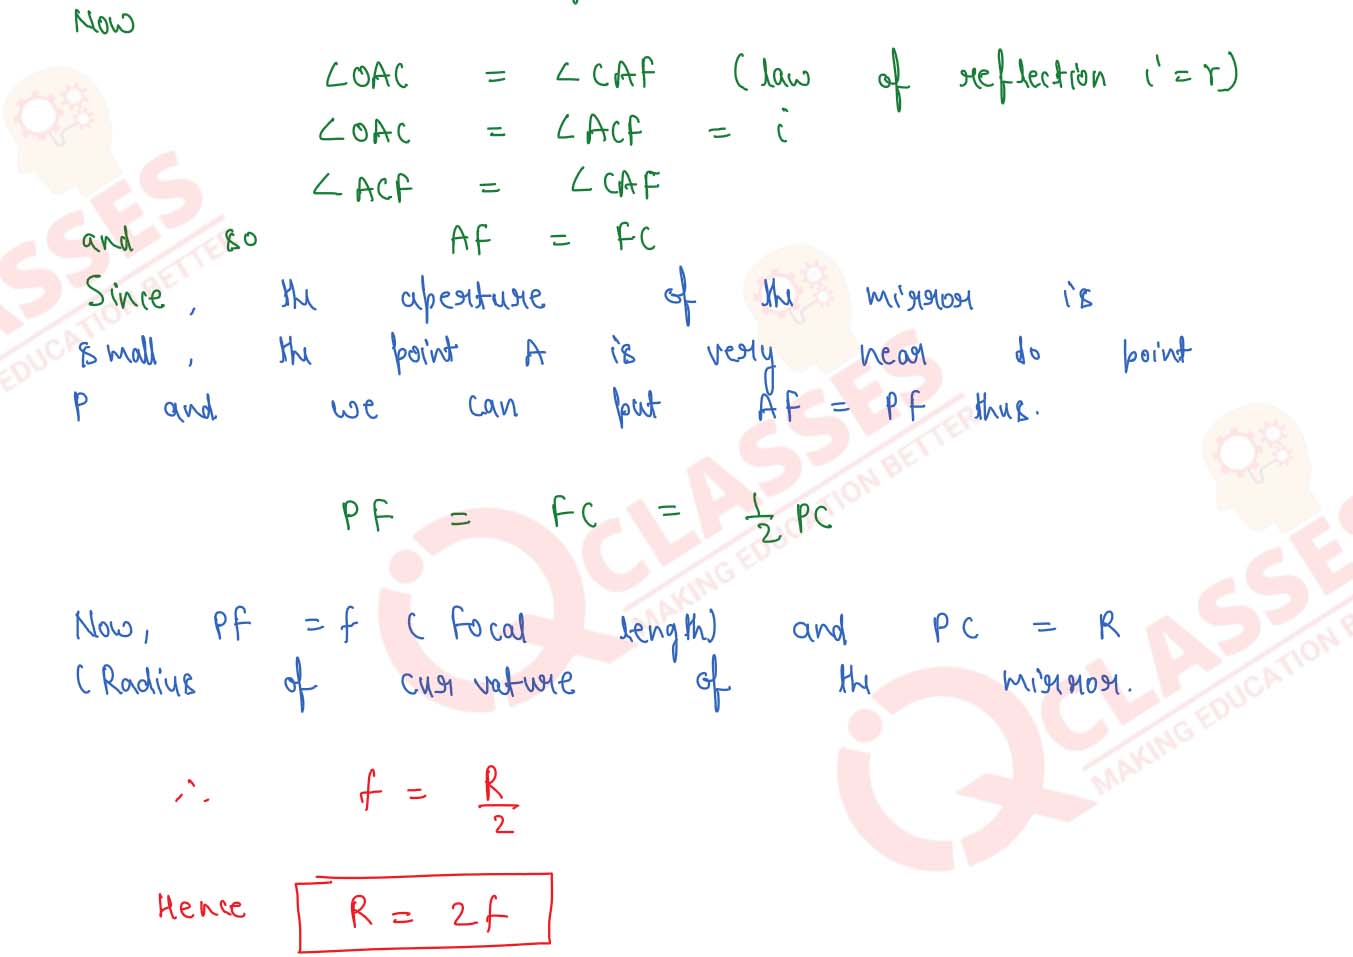 Now
∠OAC = ∠CAF (law of reflection i = r)
∠OAC = ∠ACF = i
∠ACF = ∠CAF
and so AF = FC
Since, the aperture of the mirror is
small, the point A is very near do point
P and we can put AF = PF thus.
PF = FC = 1/2 PC
Now, PF = f (Focal length) and PC = R
(Radius of curvature of the mirror.
∴ f = R/2
Hence R = 2f
CLASSES
MAKING EDUCATION BETTER
CLASSES
MAKING EDUCATION BETTER